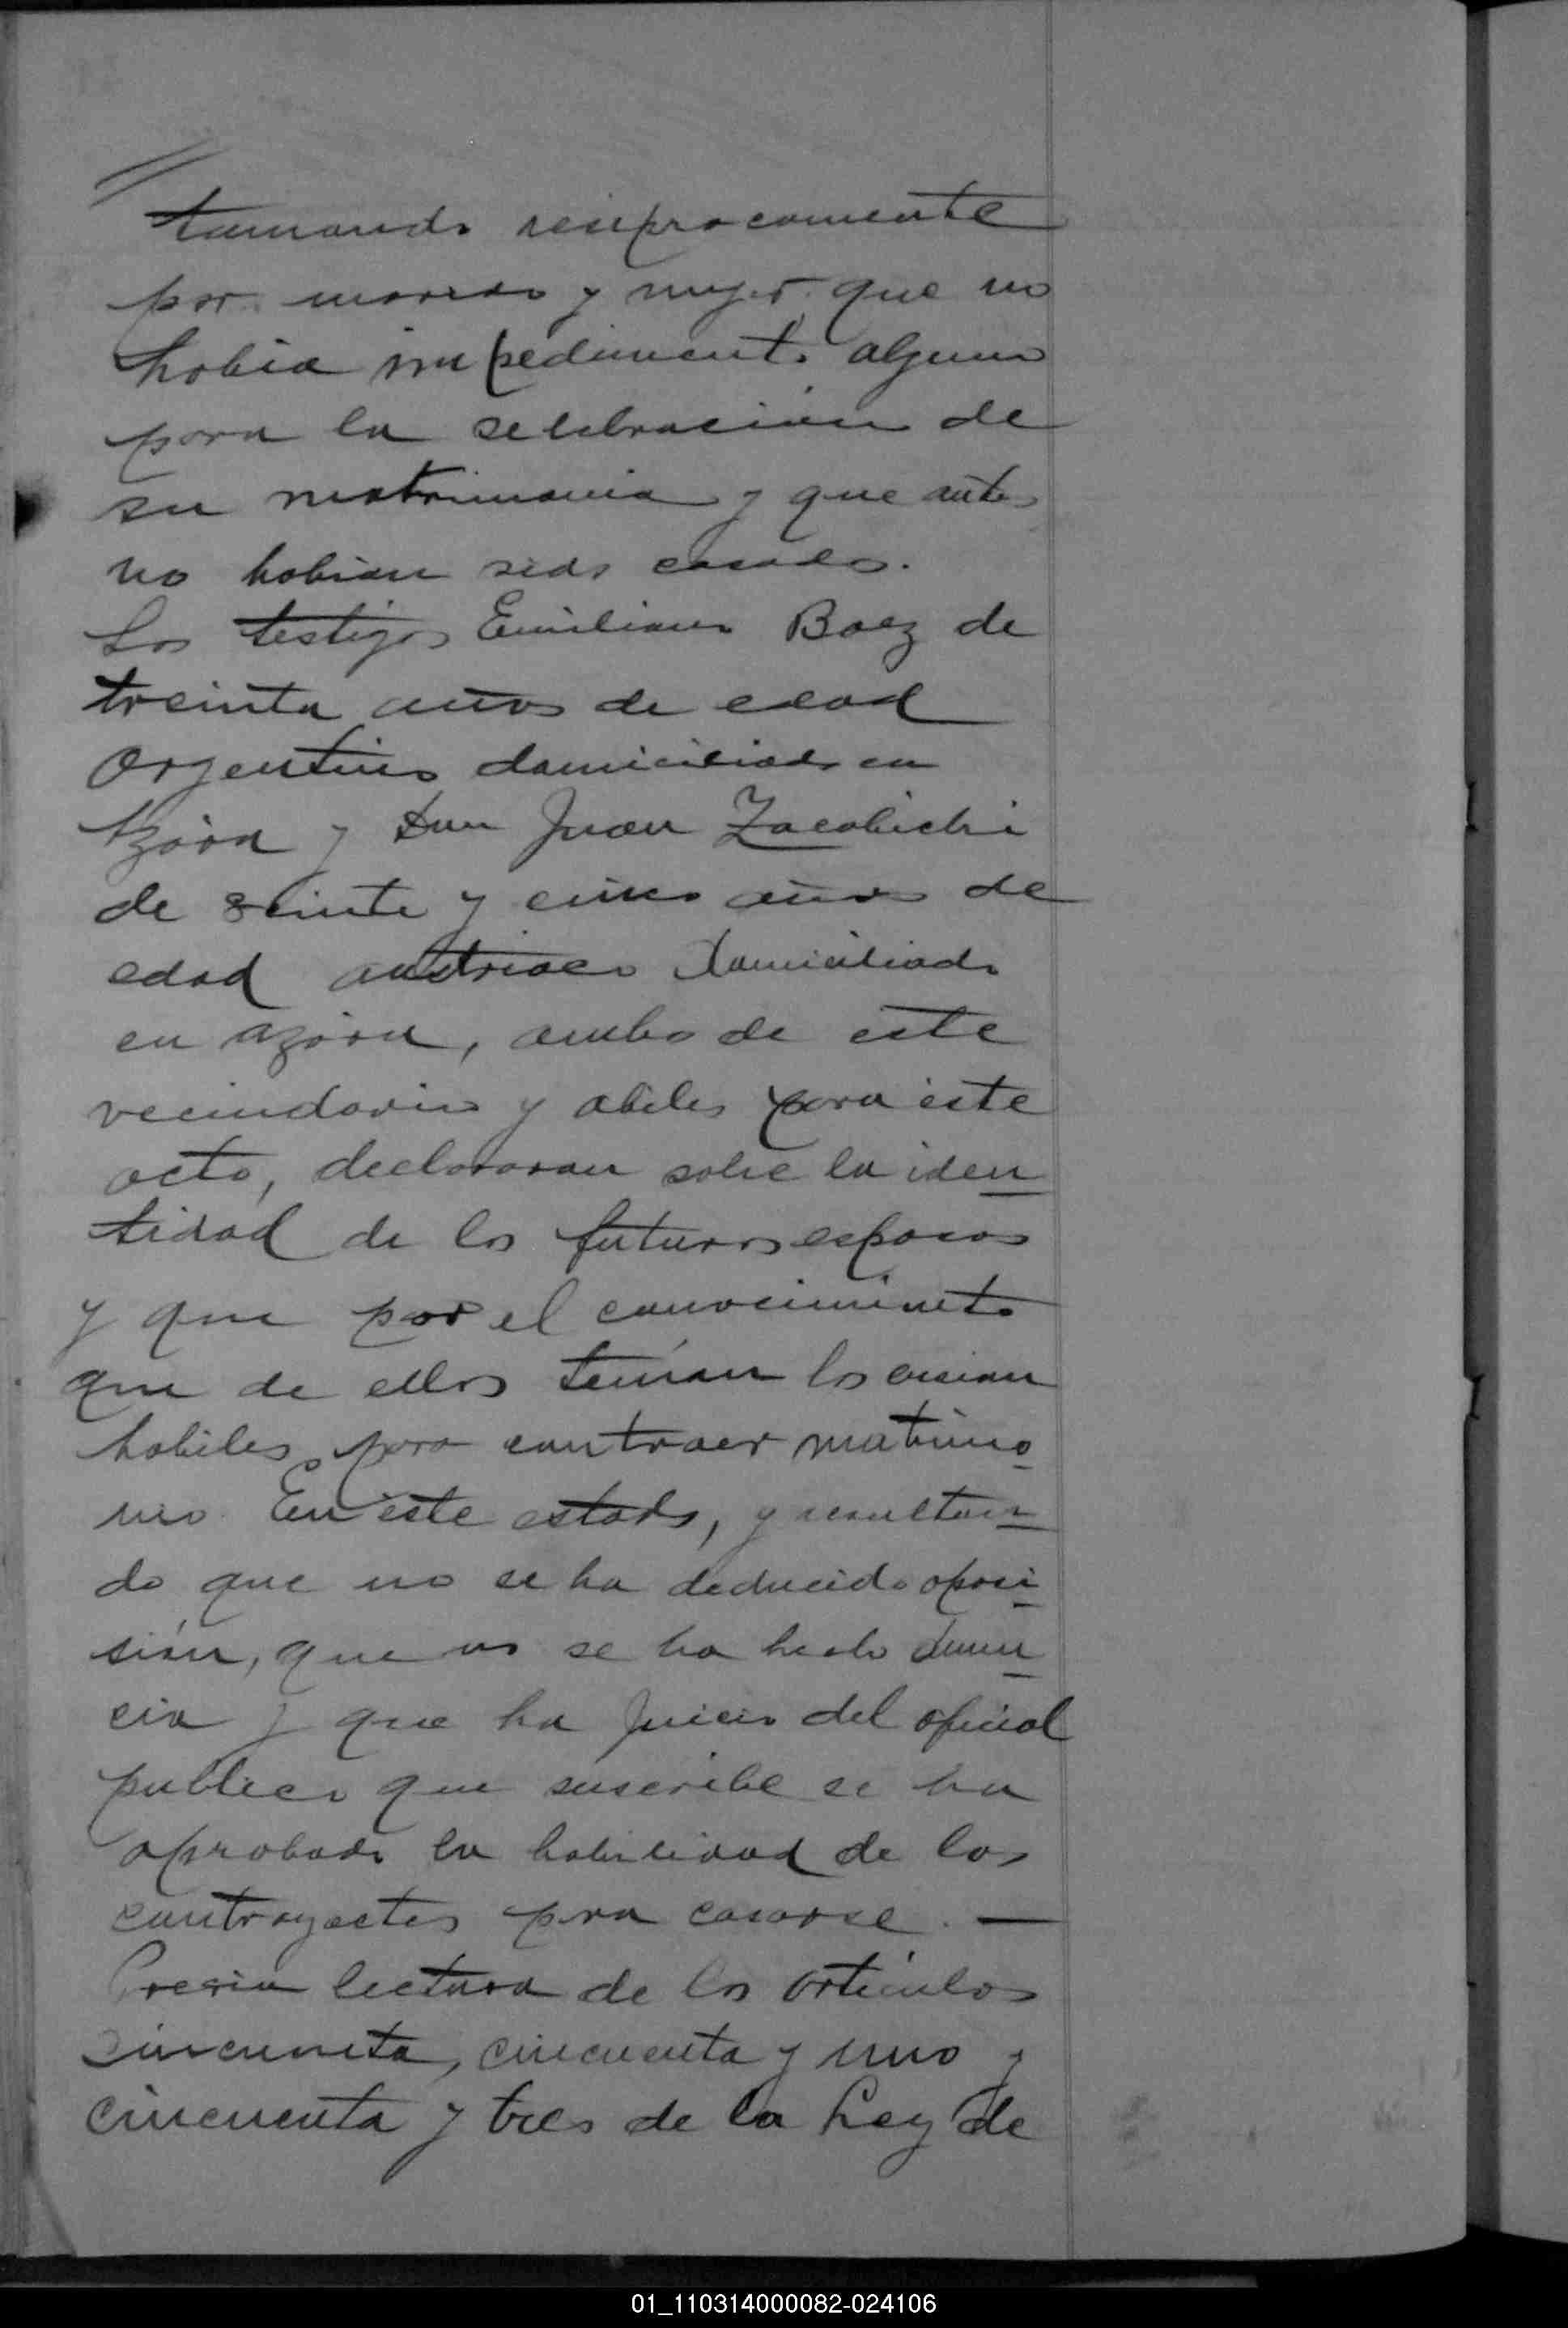 tamando resiprocamente
por marido y mujer que no
habia impedimento alguno
para la selebracion de
su matrimonio y que antes
no habian sido casados.
Los testigos Emiliano Baez de
treinta años de edad
Argentino domiciliado en
Azara y Don Juan Zacabichi
de veinte y cinco años de
edad austriaco Domiciliado
en Azara, ambos de este
vecindario y abiles para este
acto, declararan sobre la iden
tidad de los futuros esposos
y que por el conocimineto
que de ellos tenian los creian
habiles para contraer matrimo
nio. En este estado, y resultan
do que no se ha deducido oposi
sión, que no se ha hecho denun
cia y que ha juicio del oficial
publico que suscribe se ha
aprobado la habilidad de los
contrayectes para casarse. —
Previa lectura de los articulos
cincuneta, cincuenta y uno y
cincuenta y tres de la Ley de
01_110314000082-024106